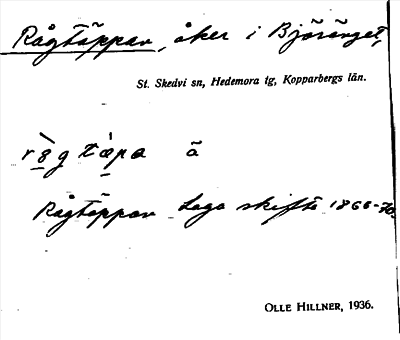 Rågtäppan, åker i Björänget,
St. Skedvi sn, Hedemora tg, Kopparbergs län.
Rågtäppan Laga skifte 1866-70.
OLLE HILLNER, 1936.